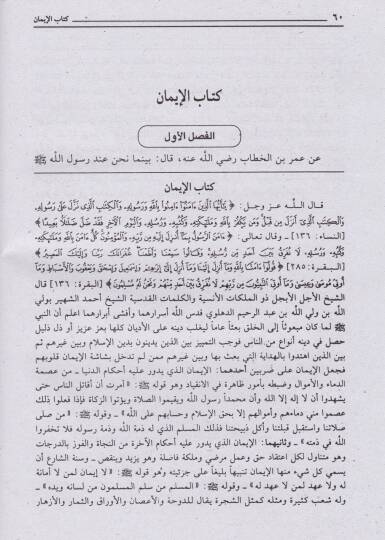 ٦٠ كتاب الإيمان
كتاب الإيمان
الفصل الأول
عن عمر بن الخطاب رضي الله عنه، قال: بينما نحن عند رسول الله ﷺ
كتاب الإيمان
قال الله عز وجل: ﴿يَٰٓأَيُّهَا ٱلَّذِينَ ءَامَنُوٓا۟ ءَامِنُوا۟ بِٱللَّهِ وَرَسُولِهِۦ وَٱلْكِتَٰبِ ٱلَّذِى نَزَّلَ عَلَىٰ رَسُولِهِۦ
وَٱلْكِتَٰبِ ٱلَّذِىٓ أَنزَلَ مِن قَبْلُ وَمَن يَكْفُرْ بِٱللَّهِ وَمَلَٰٓئِكَتِهِۦ وَكُتُبِهِۦ وَرُسُلِهِۦ وَٱلْيَوْمِ ٱلْءَاخِرِ فَقَدْ ضَلَّ ضَلَٰلًۢا بَعِيدًا﴾
[النساء: ١٣٦] ـ وقال تعالى: ﴿ءَامَنَ ٱلرَّسُولُ بِمَآ أُنزِلَ إِلَيْهِ مِن رَّبِّهِۦ وَٱلْمُؤْمِنُونَ كُلٌّ ءَامَنَ بِٱللَّهِ وَمَلَٰٓئِكَتِهِۦ
وَكُتُبِهِۦ وَرُسُلِهِۦ لَا نُفَرِّقُ بَيْنَ أَحَدٍ مِّن رُّسُلِهِۦ وَقَالُوا۟ سَمِعْنَا وَأَطَعْنَا غُفْرَانَكَ رَبَّنَا وَإِلَيْكَ ٱلْمَصِيرُ﴾
[البقرة: ٢٨٥] ﴿قُولُوٓا۟ ءَامَنَّا بِٱللَّهِ وَمَآ أُنزِلَ إِلَيْنَا وَمَآ أُنزِلَ إِلَىٰٓ إِبْرَٰهِۦمَ وَإِسْمَٰعِيلَ وَإِسْحَٰقَ وَيَعْقُوبَ وَٱلْأَسْبَاطِ وَمَآ
أُوتِىَ مُوسَىٰ وَعِيسَىٰ وَمَآ أُوتِىَ ٱلنَّبِيُّونَ مِن رَّبِّهِمْ لَا نُفَرِّقُ بَيْنَ أَحَدٍ مِّنْهُمْ وَنَحْنُ لَهُۥ مُسْلِمُونَ﴾ [البقرة: ١٣٦] قال
الشيخ الأجل الأبجل ذو الملكات الأنسية والكلمات القدسية الشيخ أحمد الشهير بولي
الله بن ولي الله بن عبد الرحيم الدهلوي قدس الله أسرارهما وأفشى أبرارهما اعلم أن النبي
ﷺ لما كان مبعوثاً إلى الخلق بعثاً عاماً ليغلب دينه على الأديان كلها بعز عزيز أو ذل ذليل
حصل في دينه أنواع من الناس فوجب التمييز بين الذين يدينون بدين الإسلام وبين غيرهم ثم
بين الذين اهتدوا بالهداية التي بعث بها وبين غيرهم ممن لم تدخل بشاشة الإيمان قلوبهم
فجعل الإيمان على ضربين أحدهما: الإيمان الذي يدور عليه أحكام الدنيا ـ من عصمة
الدماء والأموال وضبطه بأمور ظاهرة في الانقياد وهو قوله ﷺ: «أمرت أن أقاتل الناس حتى
يشهدوا أن لا إله إلا الله وأن محمداً رسول الله ويقيموا الصلاة ويؤتوا الزكاة فإذا فعلوا ذلك
عصموا مني دماءهم وأموالهم إلا بحق الإسلام وحسابهم على الله» ـ وقوله ﷺ: «من صلى
صلاتنا واستقبل قبلتنا وأكل ذبيحتنا فذلك المسلم الذي له ذمة الله وذمة رسوله فلا تخفروا
الله في ذمته» ـ وثانيهما: الإيمان الذي يدور عليه أحكام الآخرة من النجاة والفوز بالدرجات
وهو متناول لكل اعتقاد حق وعمل مرضي وملكة فاضلة وهو يزيد وينقص ـ وسنة الشارع أن
يسمي كل شيء منها الإيمان تنبيهاً بليغاً على جزئيته وهو قوله ﷺ: «لا إيمان لمن لا أمانة
له ولا عهد لمن لا عهد له» ـ وقوله ﷺ: «المسلم من سلم المسلمون من لسانه ويده» ـ
وله شعب كثيرة ومثله كمثل الشجرة يقال للدوحة والأغصان والأوراق والثمار والأزهار